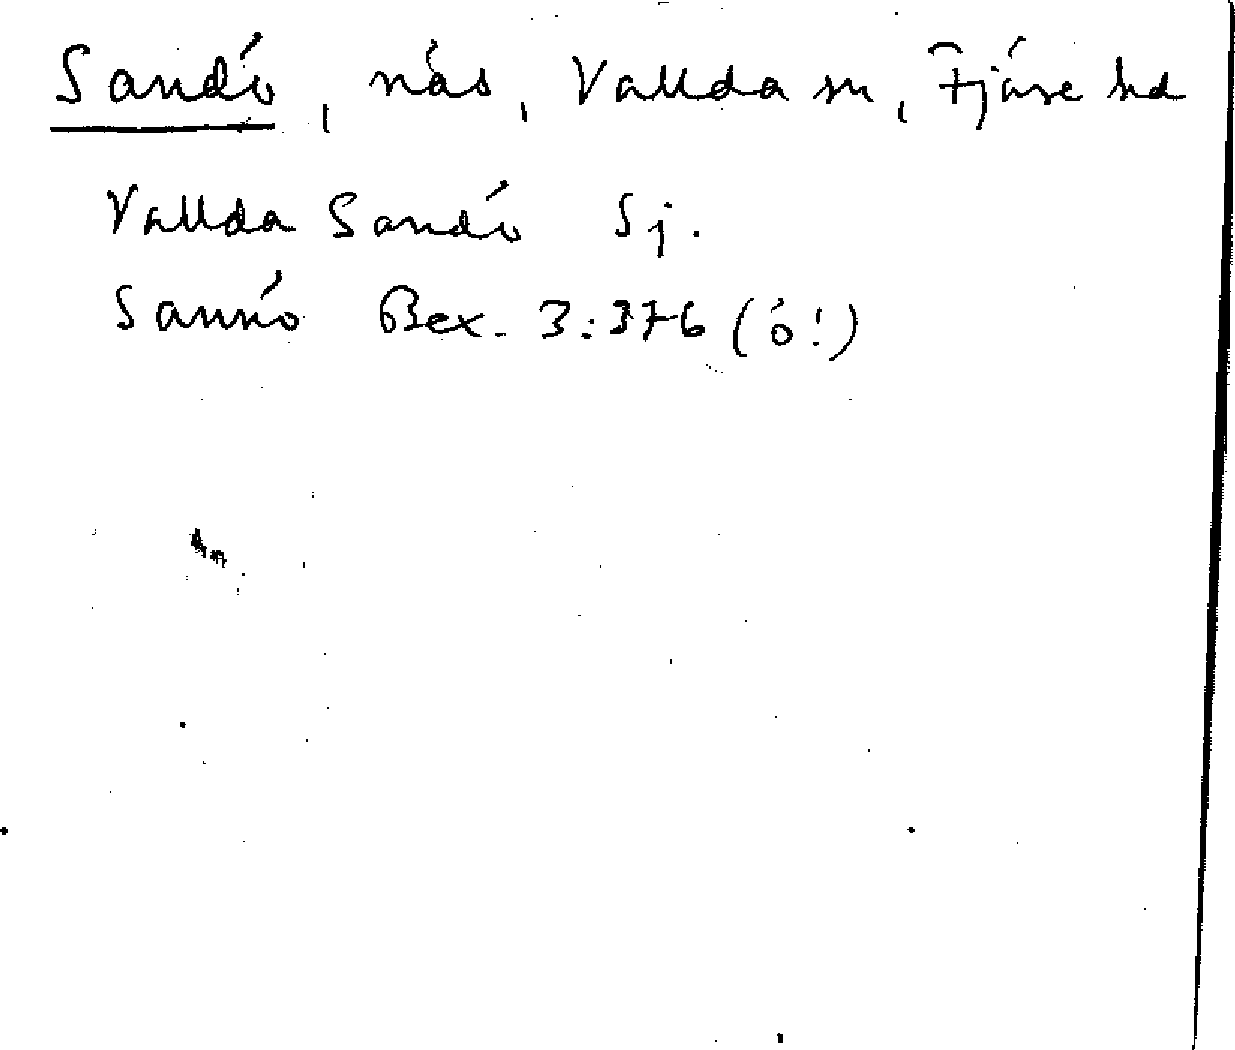 Sandö, näs, Vallda sn, Fjäre hd
Vallda Sandö Sj.
Sannö Bex. 3:376 (ó!)